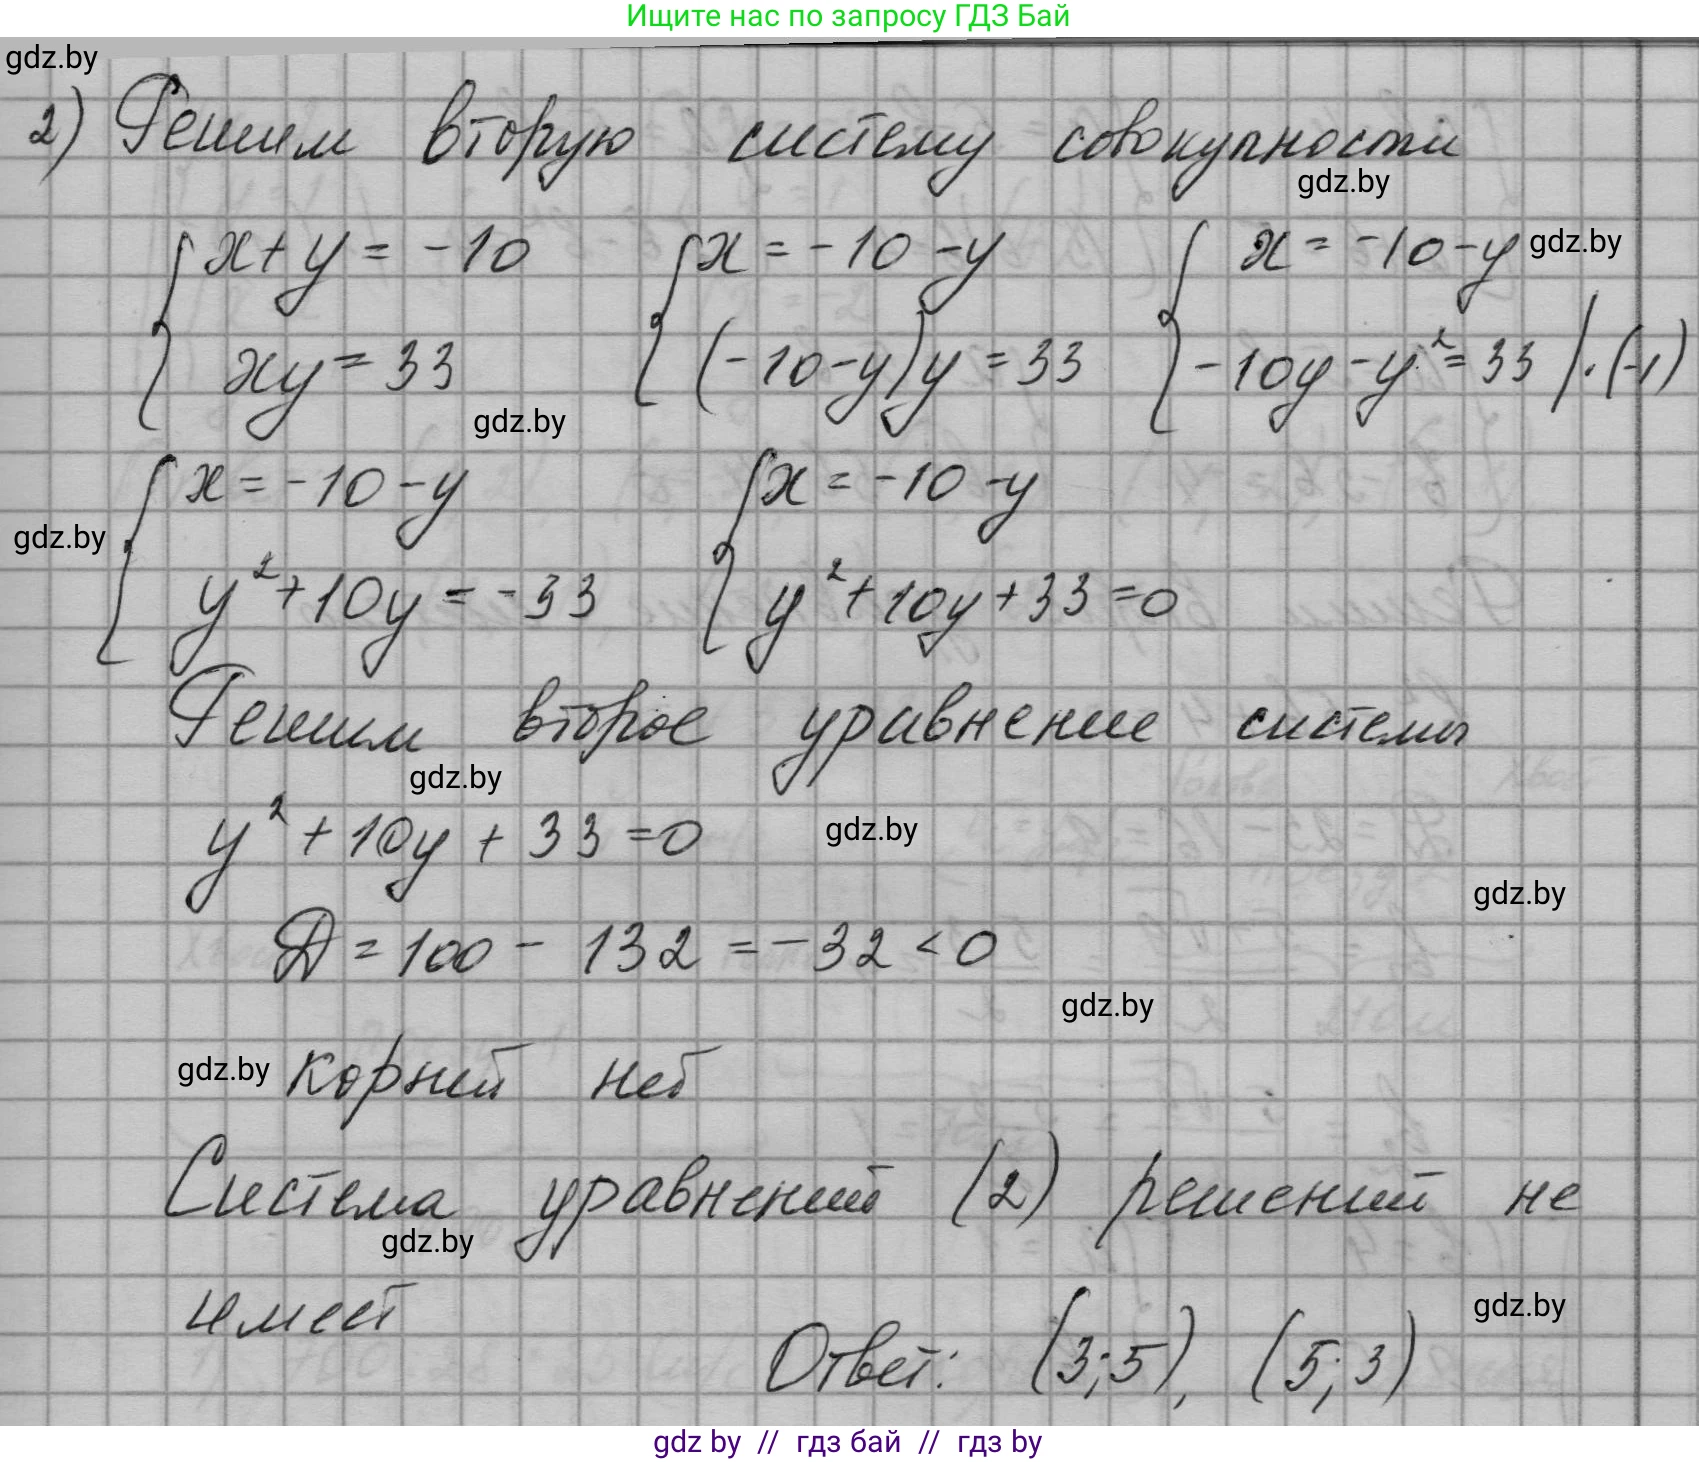 Ищите нас по запросу ГДЗ Бай
gdz.by
2) Решим вторую систему совокупности
gdz.by
{ x + y = -10 { x = -10 - y { x = -10 - y gdz.by
{ xy = 33 { (-10 - y)y = 33 { -10y - y² = 33 | · (-1)
gdz.by
{ x = -10 - y { x = -10 - y
gdz.by
{ y² + 10y = -33 { y² + 10y + 33 = 0
Решим второе уравнение системы
gdz.by
y² + 10y + 33 = 0 gdz.by
gdz.by
D = 100 - 132 = -32 < 0
gdz.by
gdz.by корней нет
Система уравнений (2) решений не
gdz.by
имеет
gdz.by
Ответ: (3;5), (5;3)
gdz by // гдз бай // гдз by